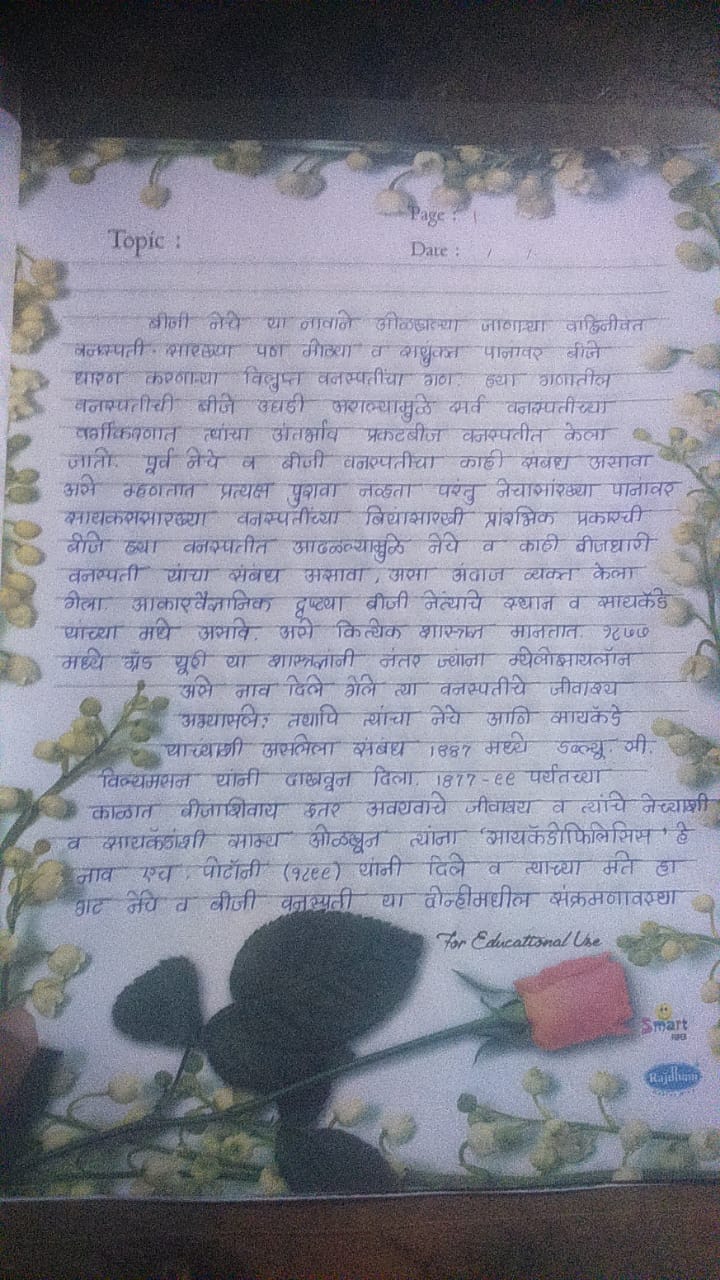 Page :
Topic :
Date : / /
बीजी नेचे या नावाने ओळखल्या जाणाऱ्या वाहिनीवंत
वनस्पती. सारख्या पण मोठ्या व संयुक्त पानावर बीजे
धारण करणाऱ्या विलुप्त वनस्पतींचा गण. ह्या गणातील
वनस्पतीची बीजे उघडी असल्यामुळे सर्व वनस्पतीच्या
वर्गीकरणात त्यांचा अंतर्भाव प्रकटबीज वनस्पतीत केला
जातो. पूर्व नेचे व बीजी वनस्पतीचा काही संबंध असावा
असे म्हणतात प्रत्यक्ष पुरावा नव्हता परंतु नेचासारख्या पानावर
सायकससारख्या वनस्पतींच्या बियांसारखी प्रारंभिक प्रकारची
बीजे ह्या वनस्पतीत आढळल्यामुळे नेचे व काही बीजधारी
वनस्पती यांचा संबंध असावा, असा अंदाज व्यक्त केला
गेला. आकारवैज्ञानिक दृष्ट्या बीजी नेत्याचे स्थान व सायकॅडे
यांच्या मधे असावे. असे कित्येक शास्त्रज्ञ मानतात. १८७७
मध्ये ग्रँड यूरी या शास्त्रज्ञांनी नंतर ज्यांना म्येलोझायलॉन
असे नाव दिले गेले त्या वनस्पतीचे जीवाश्म
अभ्यासले; तथापि त्यांचा नेचे आणि सायकॅडे
याच्याशी असलेला संबंध 1887 मध्ये डब्ल्यू. सी.
विल्यमसन यांनी दाखवून दिला. 1877-९९ पर्यंतच्या
काळात बीजाशिवाय इतर अवयवाचे जीवाश्म व त्यांचे नेच्याशी
व सायकॅडांशी साम्य ओळखून त्यांना 'सायकॅडोफिलिसिस' हे
नाव एच. पोटॉनी (१८९९) यांनी दिले व त्याच्या मते हा
गट नेचे व बीजी वनस्पती या दोन्हीमधील संक्रमणावस्था
For Educational Use
Smart
Rajdhani